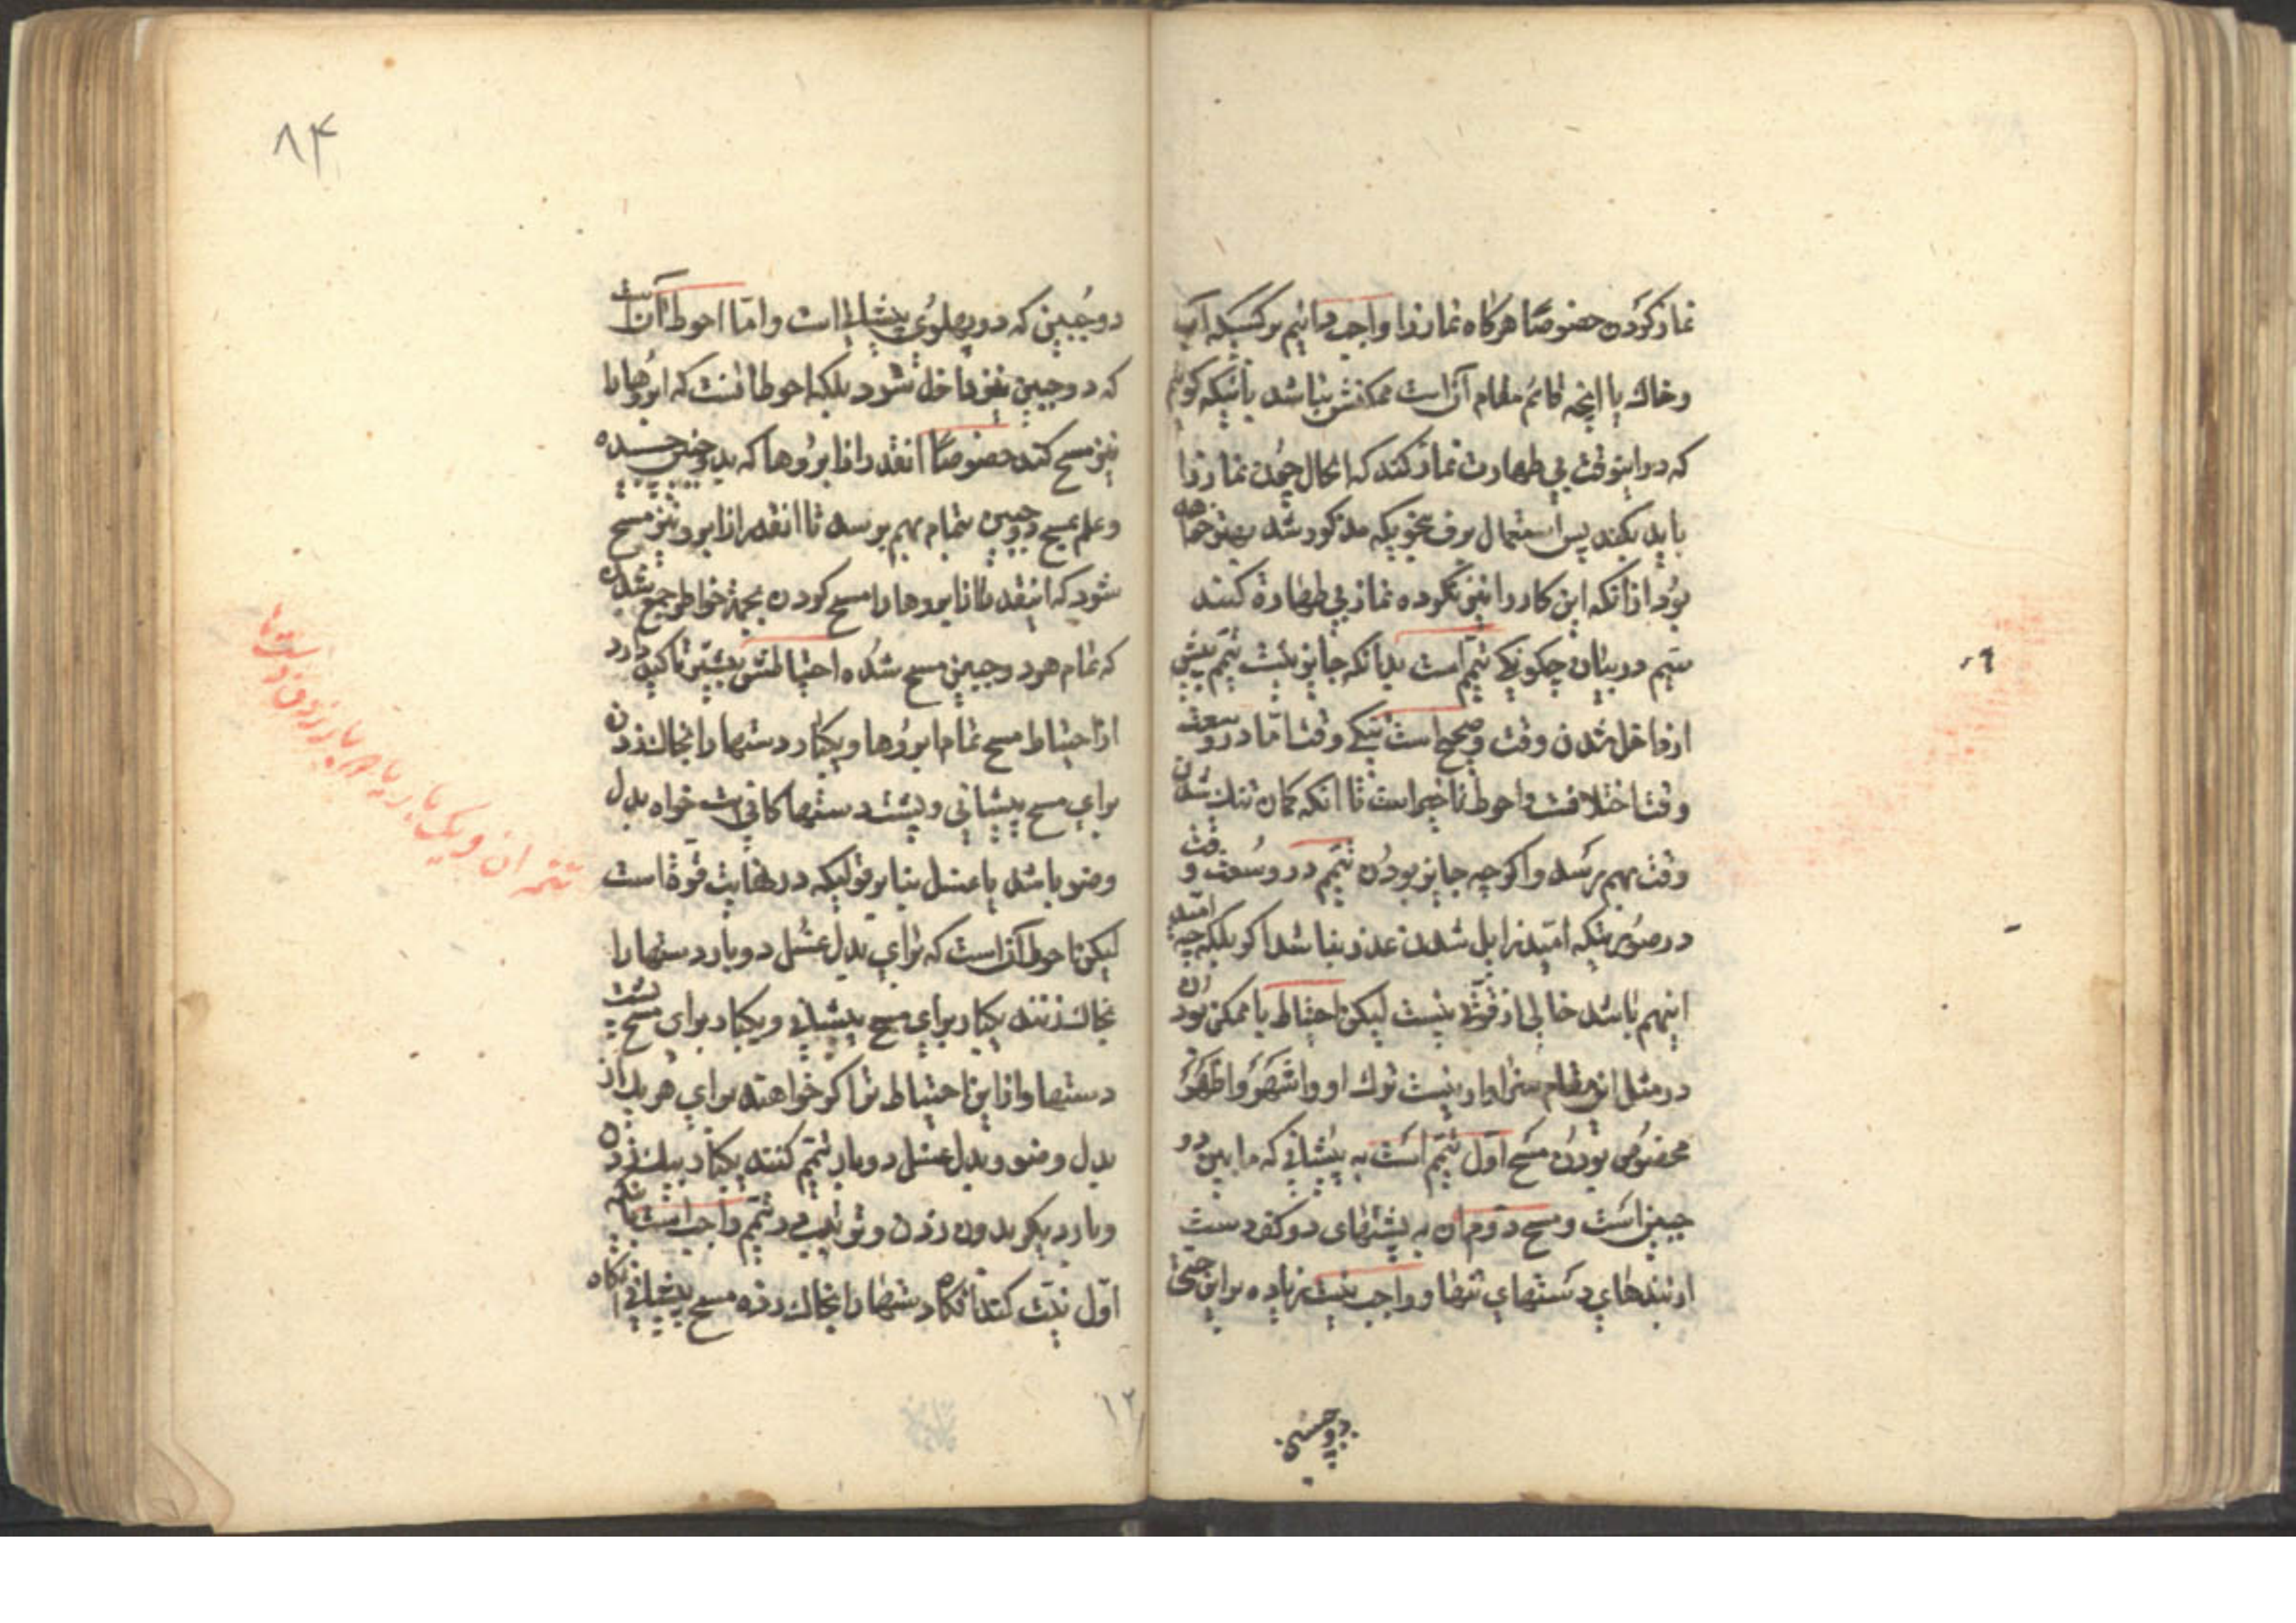 نماز کردن خصوصا هرکاه نماز را واجب دانیم بر کسیکه آب
و خاك یا انچه قائم مقام آن است ممکنش نباشد یا نیکه کوئیم
که در اینوقت بی طهارت نماز کند که انحال چون نماز را
باید بکند پس استعمال برف بنحویکه مذکور شد بهتر خواهد
بود از انکه این کار را نیز نکرده نماز بی طهارة کنند
سیم در بیان چکونکی تیمم است بدانکه جایز نیست تیمم پیش
از داخل شدن وقت و صحیح است در تنکی وقت اما در وسعت
وقت اختلافست و احوط تاخیر است تا انکه کمان تنك شدن
وقت بهم رسد و اکر چه جایز بودن تیمم در وسعت وقت
در صورتیکه امید زایل شدن عذر نباشد بلکه اکر چه امید
اینهم باشد خالی از قوة نیست لیکن احتیاط با ممکن بودن
در مثل این مقام سزاوار نیست ترك او و اشهر و اظهر
مخصوص بودن مسح اول تیمم است به پیشانی که ما بین دو
جبین است و مسح دوم ان به پشتهای دو کف دست
از بندهای دستهای تنها و واجب نیست زیاده بر این حتی
دو جبین
۸۴
دو جبین که دو پهلوی پیشانی است و اما احوط آنست
که دو جبین نیز داخل شود بلکه احوط انست که ابروها را
نیز مسح کند خصوصا انقدر از ابروها که بدو جبین چسبیده
و علم بمسح دو جبین بتمام بهم برسد تا انقدر از ابرو نیز مسح
شود که اینقدر از ابروها را مسح کردن بجهة خواطر جمع شدن
که تمام هر دو جبین مسح شده احتیاطش بیشتر تاکید دارد
از احتیاط مسح تمام ابروها و یکبار دستها را بخاك زدن
برای مسح پیشانی و پشت دستها کافی است خواه بدل
وضو باشد یا غسل بنا بر قولیکه در نهایت قوة است
لیکن احوط آن است که برای بدل غسل دو بار دستها را
بخاك زنند یکبار برای مسح پیشانی و یکبار برای مسح پشت
دستها و از این احتیاط تر اکر خواهند برای هر یك از
بدل وضو و بدل غسل دو بار تیمم کنند یکبار بیك زدن
و بار دیکر بدو زدن و ترتیب در تیمم واجب است بانکه
اول نیت کند انکاه دستها را بخاك زده مسح پیشانی انکاه
تتمه ان و یک بار
۱۲